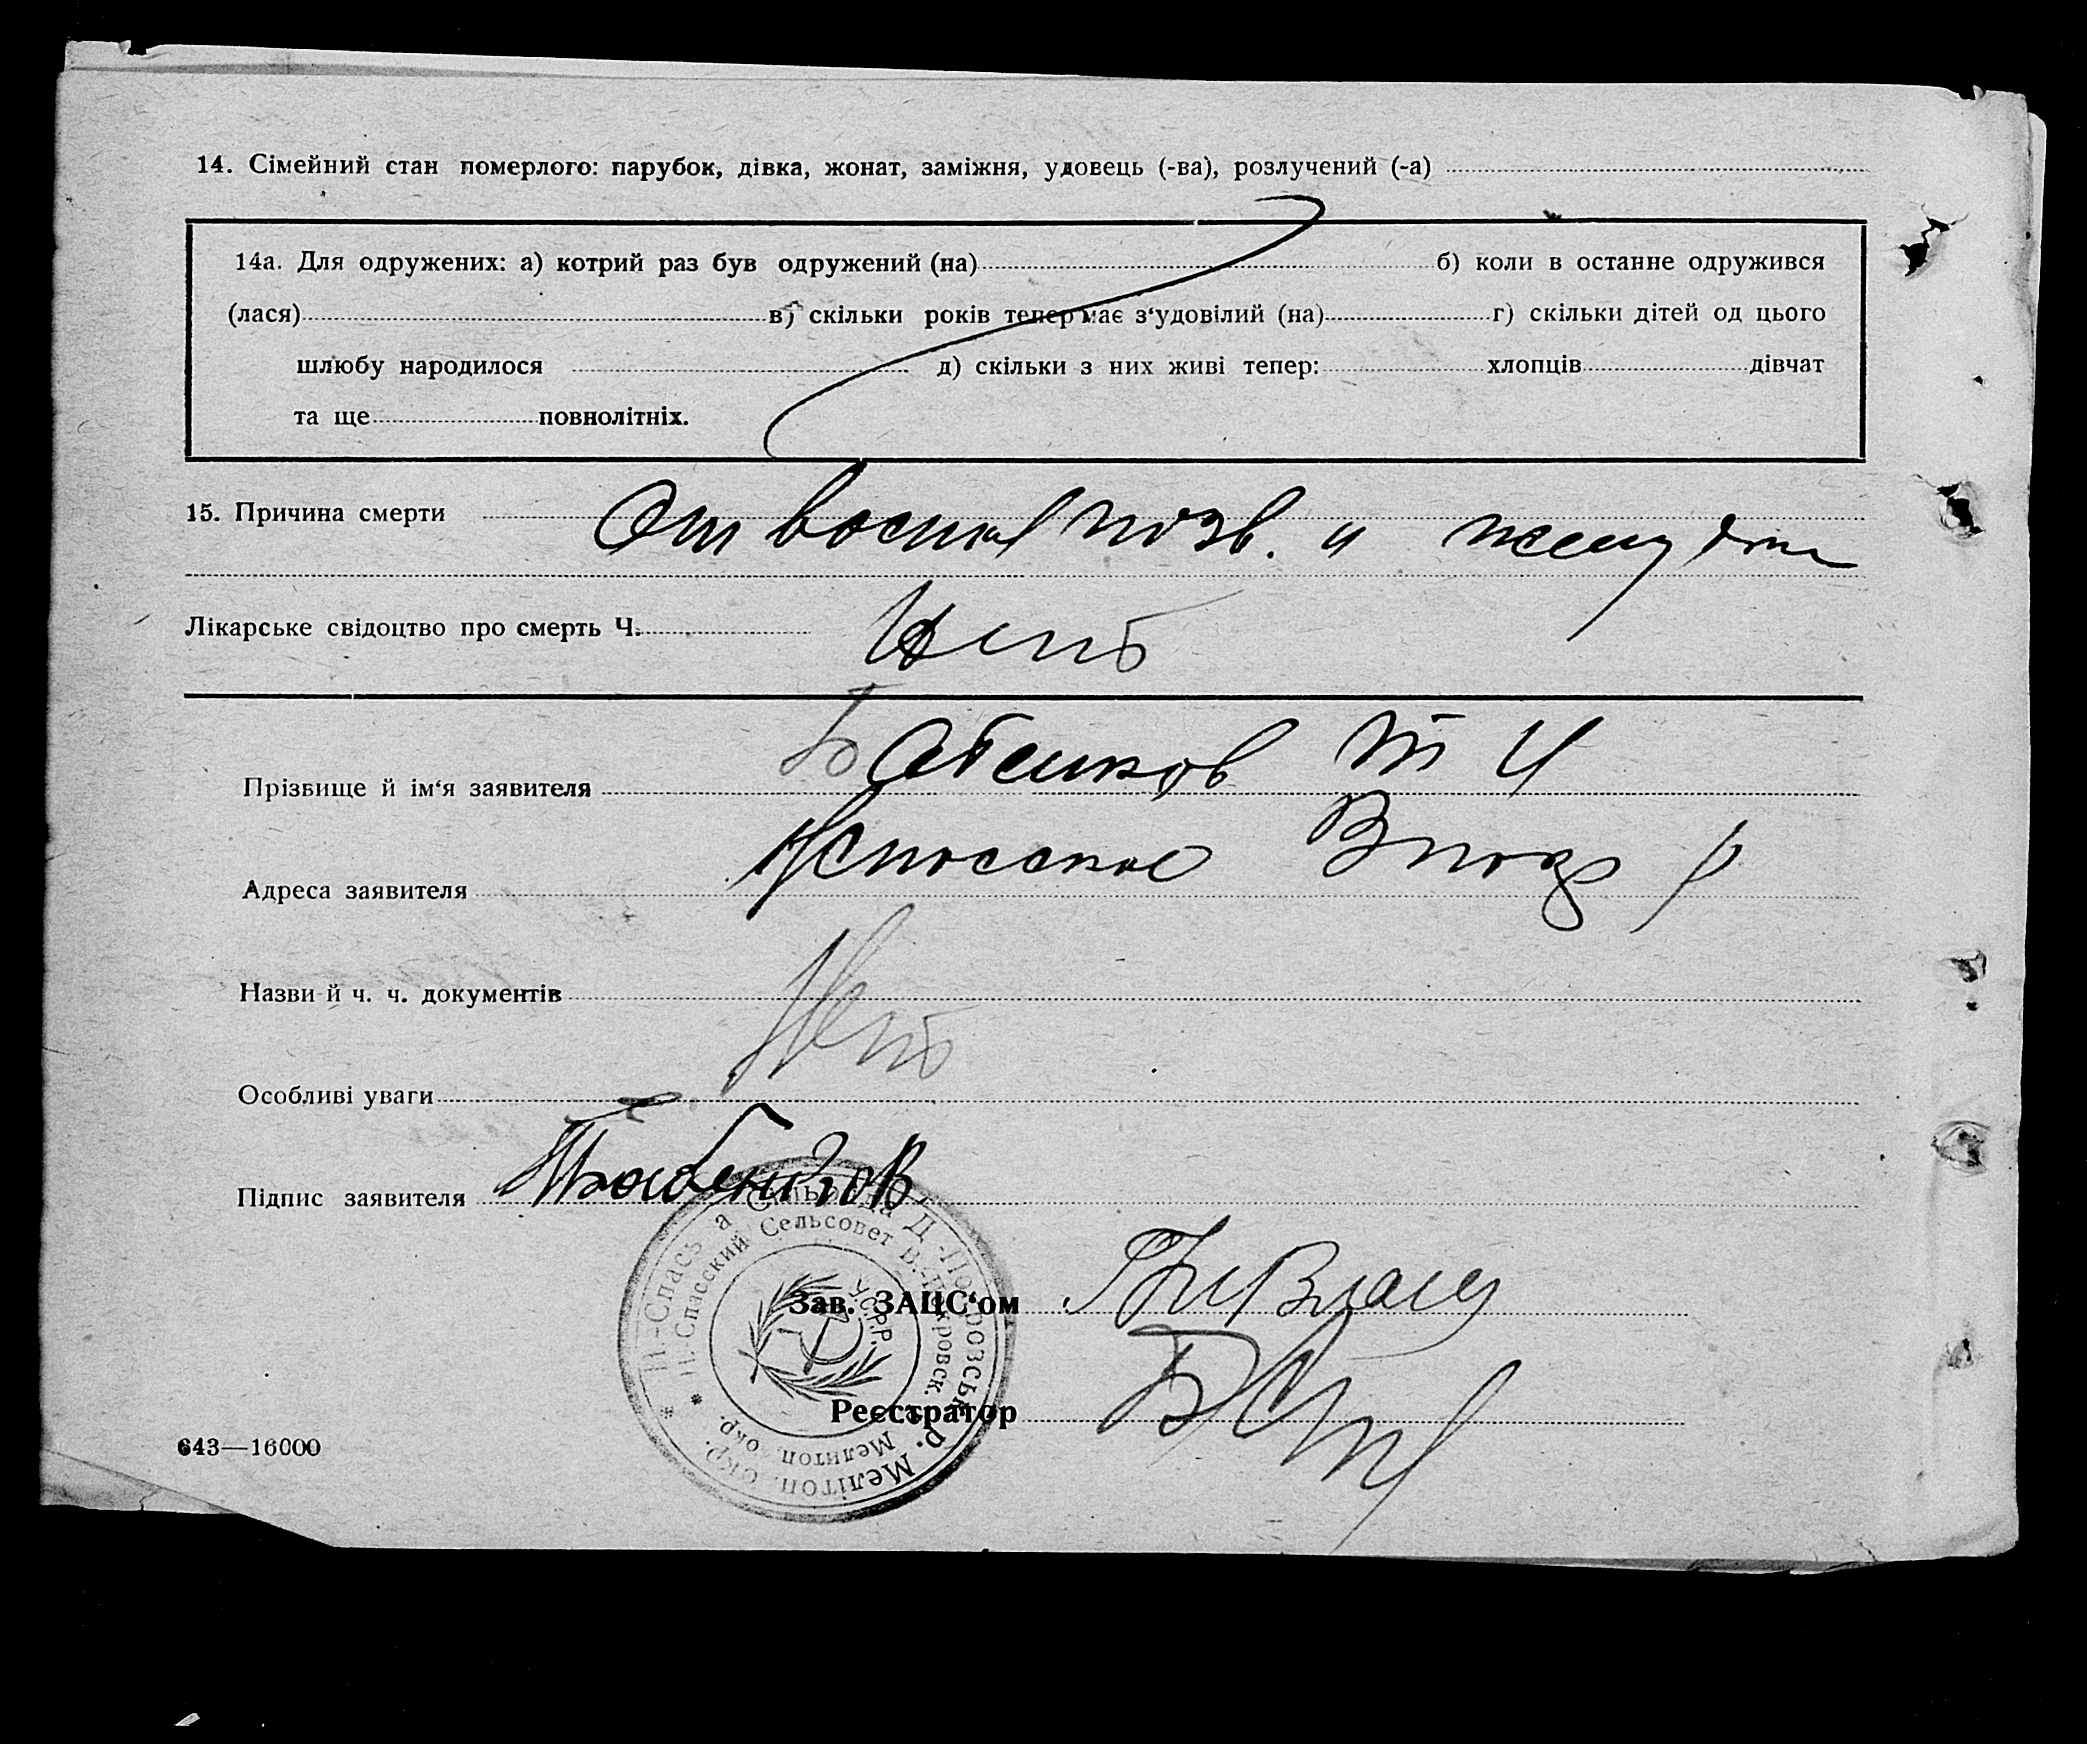 14. Сімейний стан померлого: парубок, дівка, жонат, заміжня, удовець (-ва), розлучений (-а)
14а. Для одружених: а) котрий раз був одружений (на) б) коли в останнє одружився
(лася) в) скільки років тепер має з‘удовілий (на) г) скільки дітей од цього
шлюбу народилося д) скільки з них живі тепер: хлопців дівчат
та ще повнолітніх.
15. Причина смерти От воспал и
Лікарське свідоцтво про смерть Ч. Нет
Прізвище й ім‘я заявителя Бабенков Т И
Адреса заявителя Нспасское
Назви й ч. ч. документів Нет
Особливі уваги
Підпис заявителя ТБабенков
Н.-Спаська Сільрада Д.-Покровськ. р. Мелітоп. окр.
Н.-Спасский Сельсовет В.-Покровск. р. Мелитоп. окр.
У.С.Р.Р.
Зав. ЗАЦС‘ом
Реєстратор
643—16000